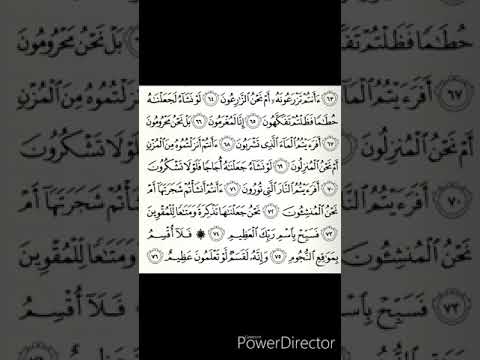 ٦٣ ءَأَنتُمْ تَزْرَعُونَهُۥٓ أَمْ نَحْنُ ٱلزَّٰرِعُونَ ٦٤ لَوْ نَشَآءُ لَجَعَلْنَٰهُ
حُطَٰمًا فَظَلْتُمْ تَفَكَّهُونَ ٦٥ إِنَّا لَمُغْرَمُونَ ٦٦ بَلْ نَحْنُ مَحْرُومُونَ
٦٧ أَفَرَءَيْتُمُ ٱلْمَآءَ ٱلَّذِى تَشْرَبُونَ ٦٨ ءَأَنتُمْ أَنزَلْتُمُوهُ مِنَ ٱلْمُزْنِ
أَمْ نَحْنُ ٱلْمُنزِلُونَ ٦٩ لَوْ نَشَآءُ جَعَلْنَٰهُ أُجَاجًا فَلَوْلَا تَشْكُرُونَ
٧٠ أَفَرَءَيْتُمُ ٱلنَّارَ ٱلَّتِى تُورُونَ ٧١ ءَأَنتُمْ أَنشَأْتُمْ شَجَرَتَهَآ أَمْ
نَحْنُ ٱلْمُنشِـُٔونَ ٧٢ نَحْنُ جَعَلْنَٰهَا تَذْكِرَةً وَمَتَٰعًا لِّلْمُقْوِينَ
٧٣ فَسَبِّحْ بِٱسْمِ رَبِّكَ ٱلْعَظِيمِ ٧٤ ۞ فَلَآ أُقْسِمُ
بِمَوَٰقِعِ ٱلنُّجُومِ ٧٥ وَإِنَّهُۥ لَقَسَمٌ لَّوْ تَعْلَمُونَ عَظِيمٌ ٧٦
PowerDirector